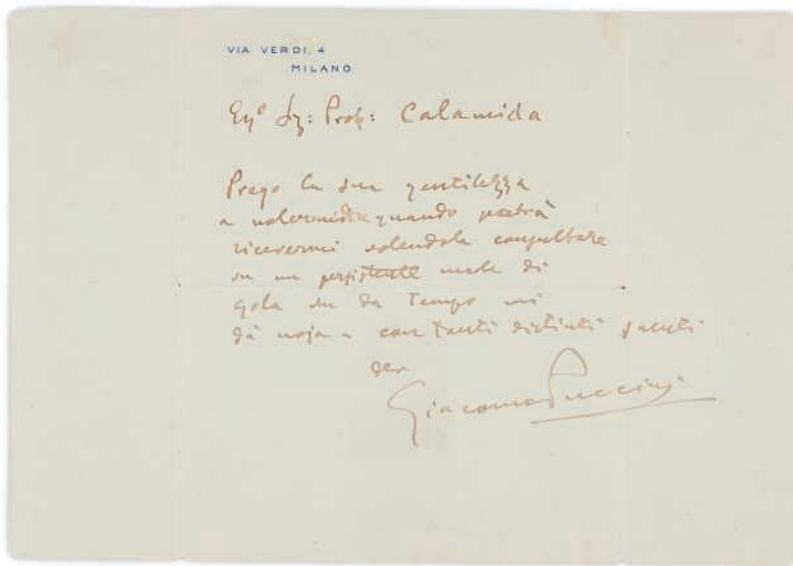 VIA VERDI, 4
MILANO
Egº Sig: Prof: Calamida
Prego la sua gentilezza
a volermi dire quando potrà
ricevermi volendola consultare
su un persistente male di
gola che da tempo mi
dà noja e con tanti distinti saluti
Giacomo Puccini